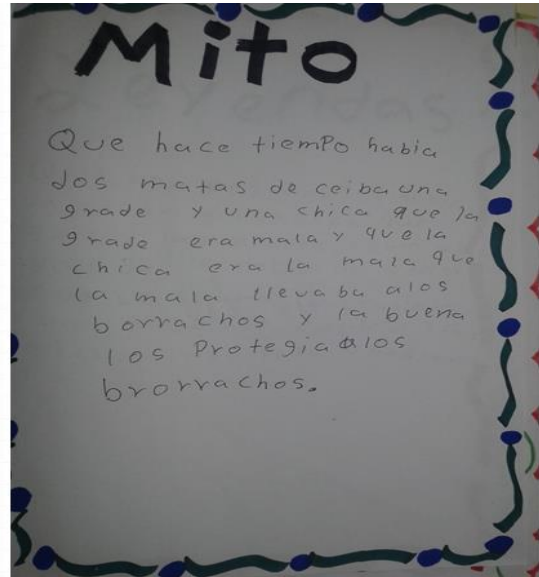 Mito
Que hace tiempo habia
dos matas de ceiba una
grade y una chica que la
grade era mala y que la
chica era la mala que
la mala llevaba alos
borrachos y la buena
los Protegia alos
brorrachos.